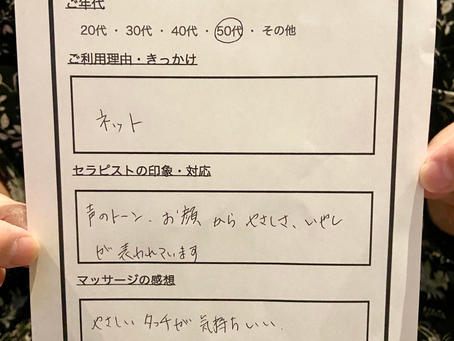 ご年代
20代 ・ 30代 ・ 40代 ・ 50代 ・ その他
ご利用理由・きっかけ
ネット
セラピストの印象・対応
声のトーン、お顔 から やさしさ、いやし
が 表われています
マッサージの感想
やさしい タッチが 気持ちいい。